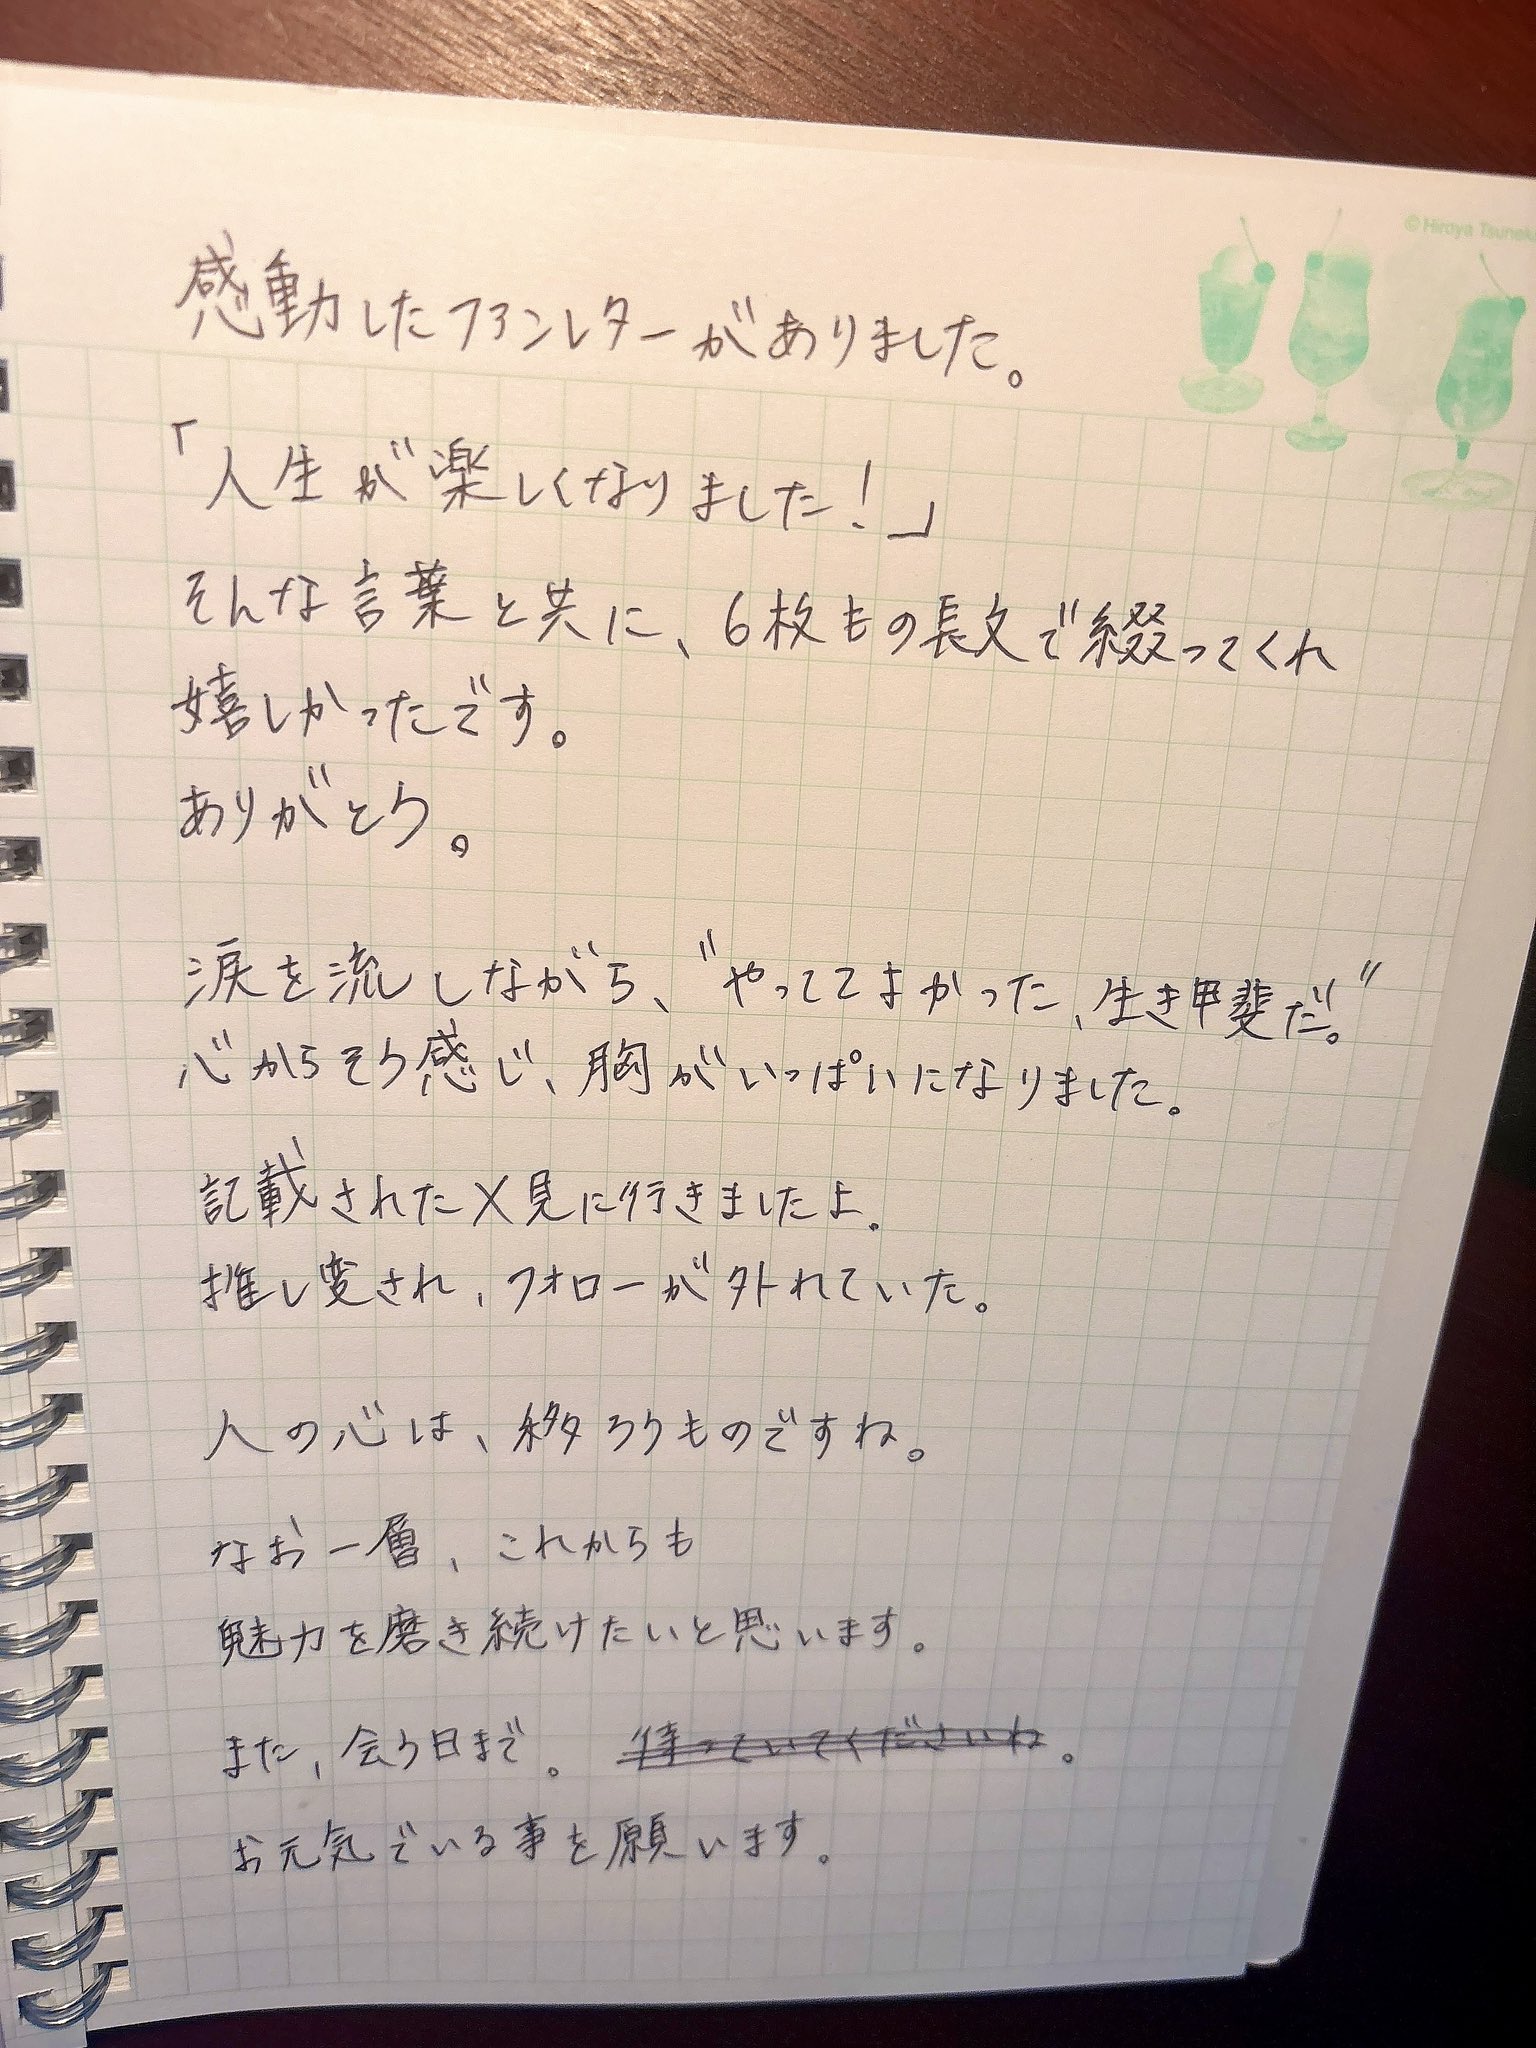 ©Hiroya Tsune
感動したファンレターがありました。
「人生が楽しくなりました！」
そんな言葉と共に、6枚もの長文で綴ってくれ
嬉しかったです。
ありがとう。
涙を流しながら、"やっててよかった、生き甲斐だ。"
心からそう感じ、胸がいっぱいになりました。
記載されたX見に行きましたよ。
推し変され、フォローが外れていた。
人の心は、移ろうものですね。
なお一層、これからも
魅力を磨き続けたいと思います。
また、会う日まで。 待っていてくださいね。
お元気でいる事を願います。